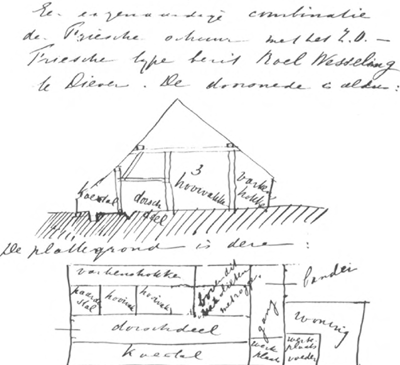 Een eigenaardige combinatie
de Friesche schuur met het Z.O. –
Friesche type bezit Roel Wesseling
te Diever. De doorsnede is aldus:
koestal
dorsch
deel
3
hooivakken
varkens
hokken
De plattegrond is deze:
varkenshokke
paarde
stal
hooivak
hooivak
gang
Pander
woning
dorschdeel
werk
plaats
koestal